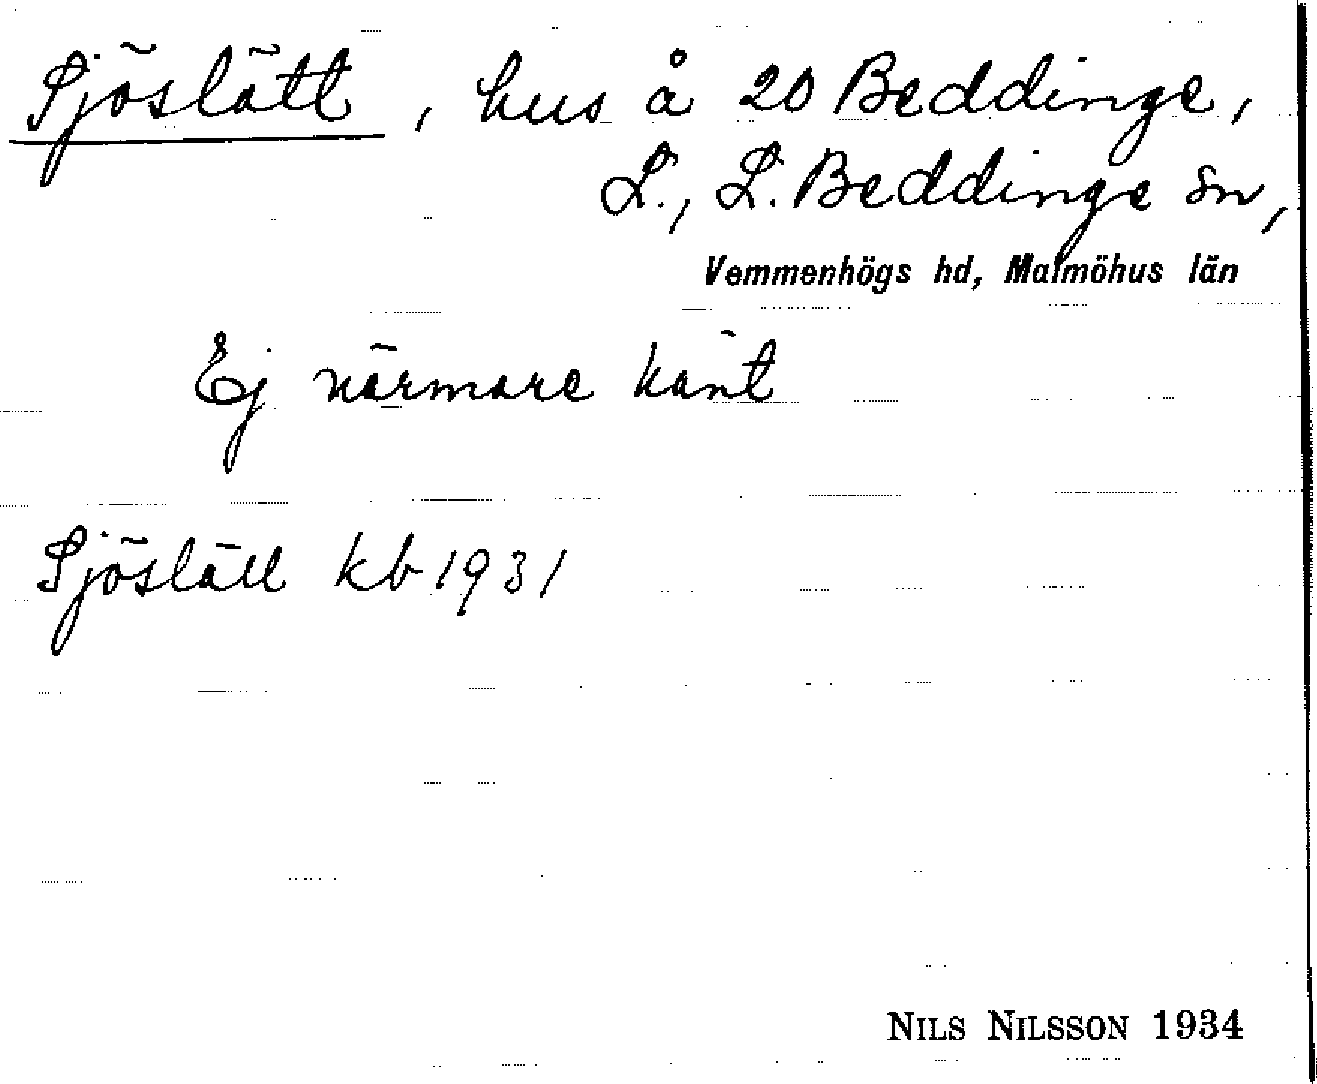 Sjöslätt, hus å 20 Beddinge,
L., L. Beddinge sn,
Vemmenhögs hd, Malmöhus län
Ej närmare känt
Sjöslätt kb 1931
NILS NILSSON 1934